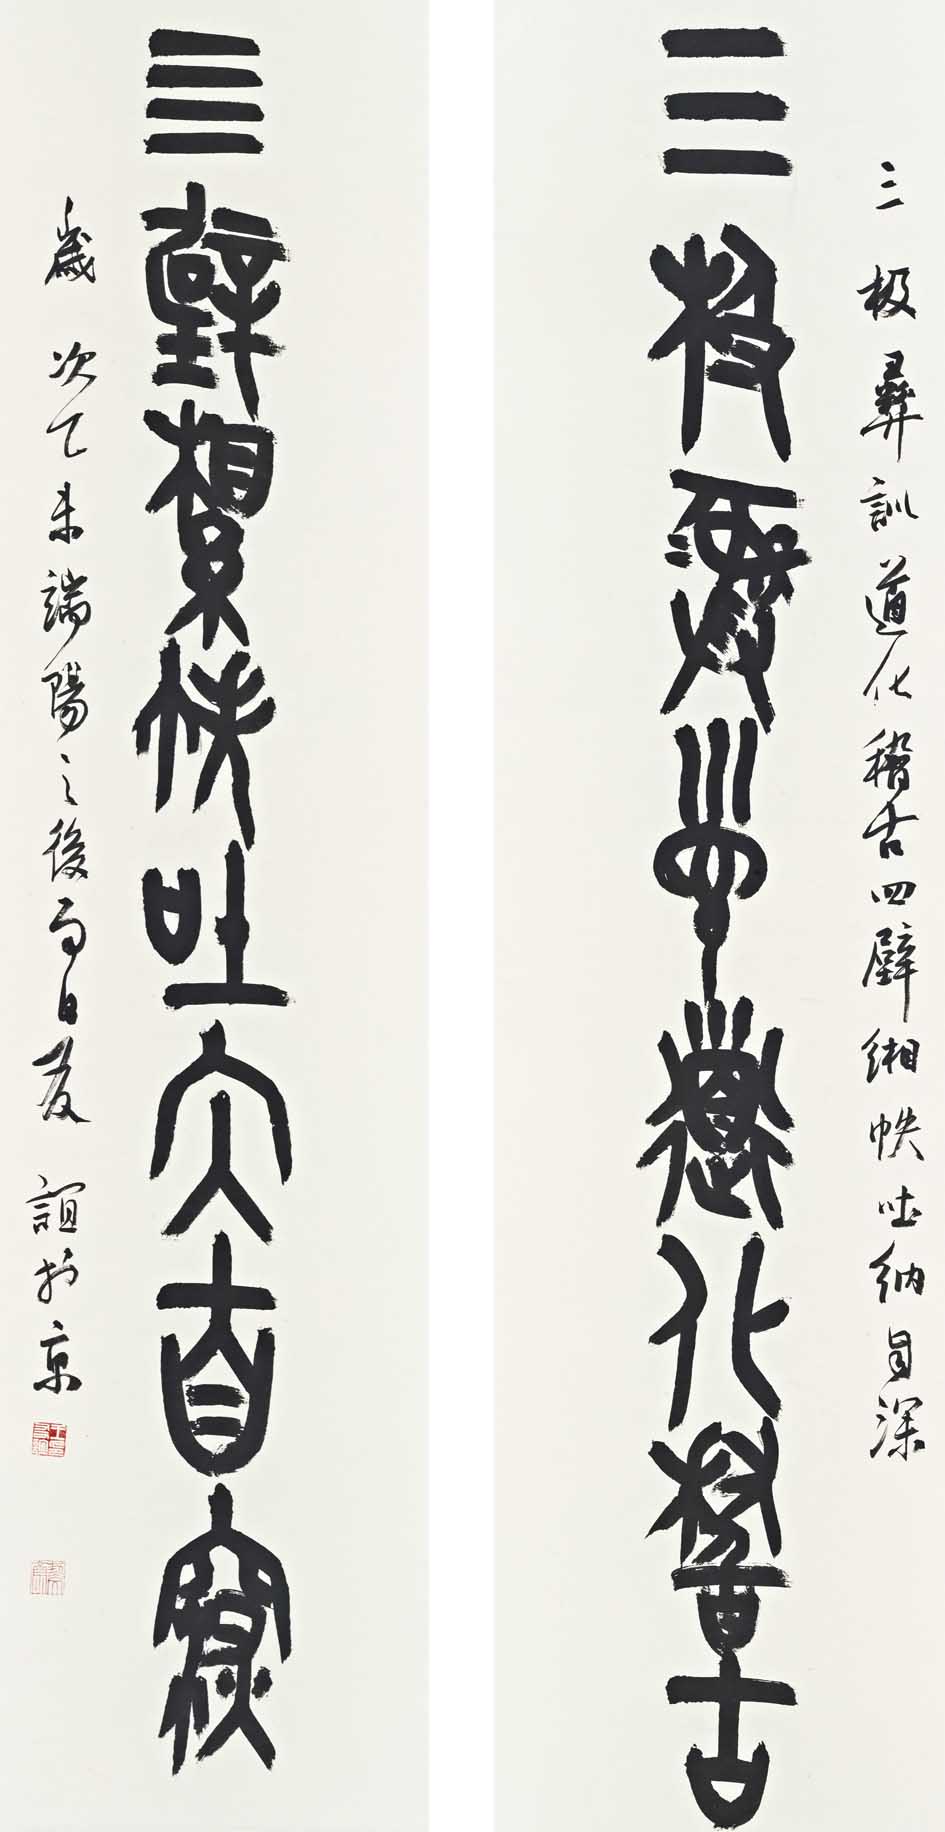 三極彝訓道化稽古四壁緗帙吐納自深
三極彝訓道化稽古
三壁緗帙吐內自深
歲次乙未端陽之後日友誼於京